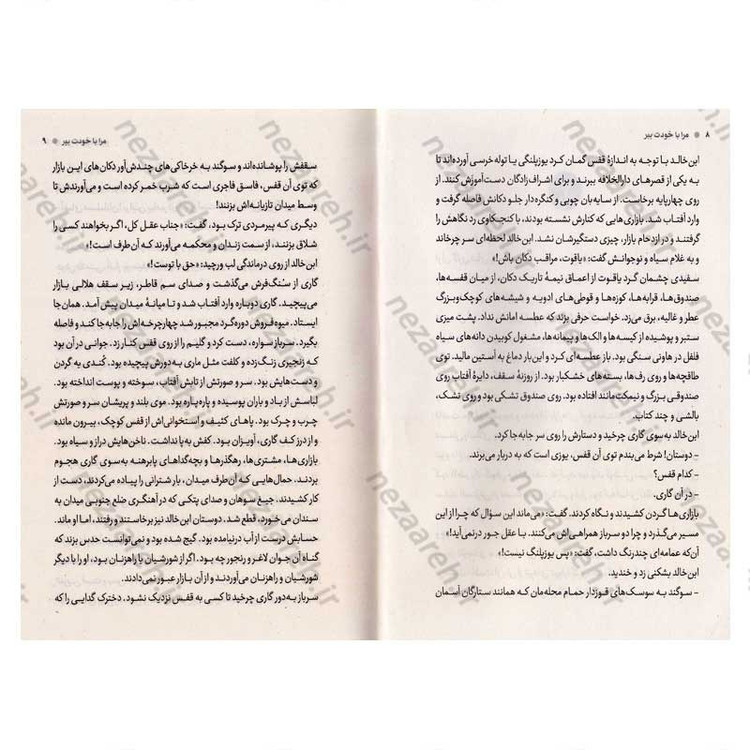 ۸ ● مرا با خودت ببر
ابن‌خالد با توجه به اندازهٔ قفس گمان کرد یوزپلنگی یا توله خرسی آورده‌اند تا
به یکی از قصرهای دارالخلافه ببرند و برای اشراف‌زادگان دست‌آموزش کنند. از
روی چهارپایه برخاست. از سایه‌بان چوبی و کنگره‌دار جلو دکانش فاصله گرفت و
وارد آفتاب شد. بازاری‌هایی که کنارش نشسته بودند، با کنجکاوی رد نگاهش را
گرفتند و در ازدحام بازار، چیزی دستگیرشان نشد. ابن‌خالد لحظه‌ای سر چرخاند
و به غلام سیاه و نوجوانش گفت: «یاقوت، مراقب دکان باش!»
سفیدی چشمان گرد یاقوت از اعماق نیمهٔ تاریک دکان، از میان قفسه‌ها،
صندوق‌ها، قرابه‌ها، کوزه‌ها و قوطی‌های ادویه و شیشه‌های کوچک‌وبزرگ
عطر و غالیه، برق می‌زد. خواست حرفی بزند که عطسه امانش نداد. پشت میزی
ستبر و پوشیده از کیسه‌ها و الک‌ها و پیمانه‌ها، مشغول کوبیدن دانه‌های سیاه
فلفل در هاونی سنگی بود. باز عطسه‌ای کرد و این‌بار دماغ به آستین مالید. توی
طاقچه‌ها و روی رف‌ها، بسته‌های خشکبار بود. از روزنهٔ سقف، دایرهٔ آفتاب روی
صندوقی بزرگ و نیمکت مانند افتاده بود. روی صندوق تشکی بود و روی تشک،
بالشی و چند کتاب.
ابن‌خالد به‌سوی گاری چرخید و دستارش را روی سر جابه‌جا کرد.
- دوستان! شرط می‌بندم توی آن قفس، یوزی است که به دربار می‌برند.
- کدام قفس؟
- در آن گاری.
بازاری‌ها گردن کشیدند و نگاه کردند. گفت: «می‌ماند این سؤال که چرا از این
مسیر می‌گذرد و چرا دو سرباز همراهی‌اش می‌کنند. با عقل جور درنمی‌آید!»
آن‌که عمامه‌ای چندرنگ داشت، گفت: «پس یوزپلنگ نیست!»
ابن‌خالد بشکنی زد و خندید.
- سوگند به سوسک‌های قوزدار حمام محله‌مان که همانند ستارگان آسمان
مرا با خودت ببر ● ۹
سقفش را پوشانده‌اند و سوگند به خرخاکی‌های چندش‌آور دکان‌های این بازار
که توی آن قفس، فاسق فاجری است که شرب خمر کرده است و می‌آورندش تا
وسط میدان تازیانه‌اش بزنند!
دیگری که پیرمردی ترک بود، گفت: «جناب عقل کل، اگر بخواهند کسی را
شلاق بزنند، از سمت زندان و محکمه می‌آورند که آن‌طرف است!»
ابن‌خالد از روی درماندگی لب ورچید: «حق با توست!»
گاری از سنگ‌فرش می‌گذشت و صدای سم قاطر، زیر سقف هلالی بازار
می‌پیچید. گاری دوباره وارد آفتاب شد و تا میانهٔ میدان پیش آمد. همان جا
ایستاد. میوه‌فروش دوره‌گرد مجبور شد چهارچرخه‌اش را جابه‌جا کند و فاصله
بگیرد. سرباز سواره، دست برد و گلیم را از روی قفس کنار زد. جوانی در آن بود
که زنجیری زنگ‌زده و کلفت مثل ماری به دورش پیچیده بود. کُندی به گردن
و دست‌هایش بود. سر و صورتش از تابش آفتاب، سوخته و پوست انداخته بود.
لباسش از باد و باران پوسیده و پاره‌پاره بود. موی بلند و پریشان سر و صورتش
چرب و چرک بود. پاهای کثیف و استخوانی‌اش از قفس کوچک، بیرون مانده
و از درز کف گاری، آویزان بود. کفش به پا نداشت. ناخن‌هایش دراز و سیاه بود.
بازاری‌ها، مشتری‌ها، رهگذرها و بچه‌گداهای پابرهنه به‌سوی گاری هجوم
بردند. حمال‌هایی که آن‌طرف میدان، بار شترانی را پیاده می‌کردند، دست از
کار کشیدند. جیغ سوهان و صدای پتکی که در آهنگری ضلع جنوبی میدان به
سندان می‌خورد، قطع شد. دوستان ابن‌خالد نیز برخاستند و رفتند، اما او ماند.
حسابش درست از آب درنیامده بود. گیج شده بود و نمی‌توانست حدس بزند که
گناه آن جوان لاغر و رنجور چه بود. اگر از شورشیان یا راهزنان بود، او را با دیگر
شورشیان و راهزنان می‌آوردند و از آن بازار عبور نمی‌دادند.
سرباز به‌دور گاری چرخید تا کسی به قفس نزدیک نشود. دخترک گدایی را که
nezaareh.ir